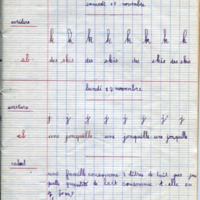 samedi 15 novembre
écriture
k k k k k k k k
ab. des skis des skis des skis des skis
lundi 17 novembre
écriture
j j j j j j j
ab une jonquille une jonquille une jonquille
calcul
une famille consomme 2 litres de lait par jour
quelle quantité de lait consomme t elle en